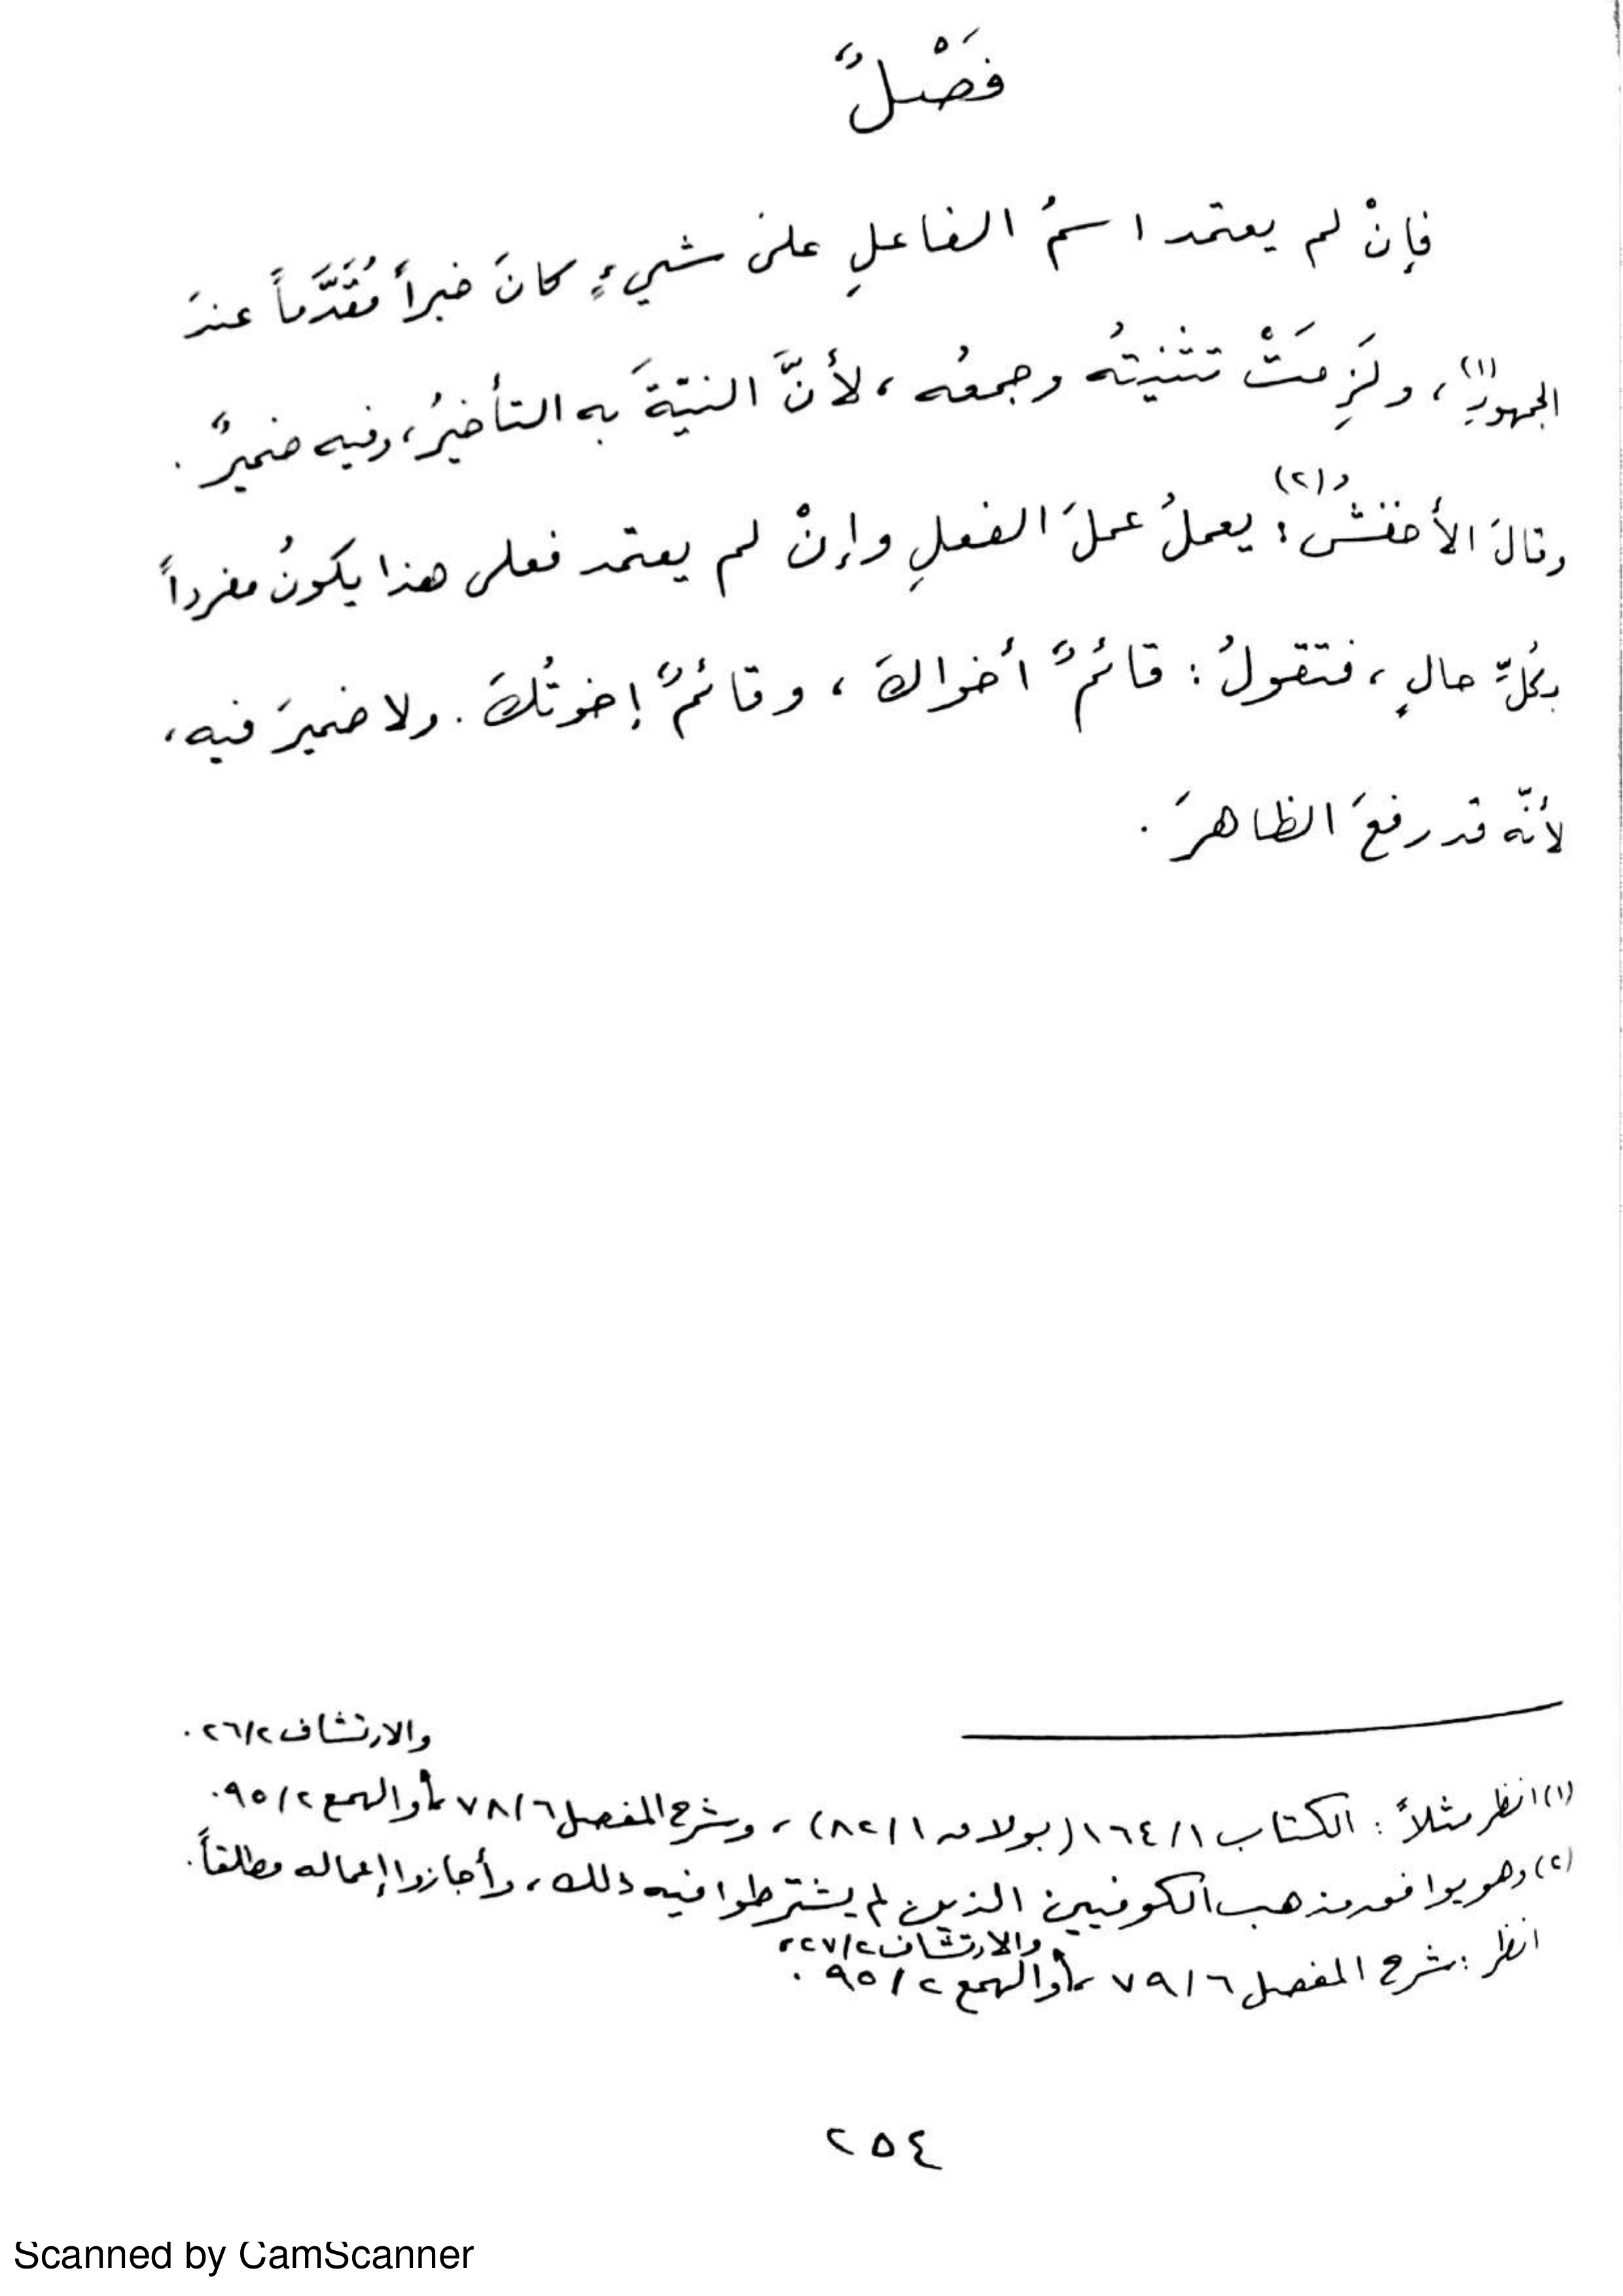 فَصْلٌ
فإنْ لم يعتمد اسمُ الفاعلِ على شيءٍ كانَ خبراً مُقَدَّماً عندَ
الجمهورِ(١)، ولَزِمَتْ تثنيتُه وجمعُه، لأنَّ النيّةَ به التأخيرُ، وفيه ضميرٌ.
وقالَ الأخفشُ(٢): يعملُ عملَ الفعلِ وإنْ لم يعتمد فعلى هذا يكونُ مفرداً
بكُلِّ حالٍ، فتقولُ: قائمٌ أخواكَ، وقائمٌ إخوتُكَ. ولا ضميرَ فيه،
لأنّه قد رفعَ الظاهرَ.
والارتشاف ٢٦/٢.
(١) انظر مثلاً: الكتاب ١٦٤/١ (بولاق ٨٢/١)، وشرح المفصل ٧٨/٦، والهمع ٩٥/٢.
(٢) وهو يوافق مذهب الكوفيين الذين لم يشترطوا فيه ذلك، وأجازوا إعماله مطلقاً.
والارتشاف ٢٢٧/٢
انظر: شرح المفصل ٧٩/٦، والهمع ٩٥/٢.
٢٥٤
Scanned by CamScanner